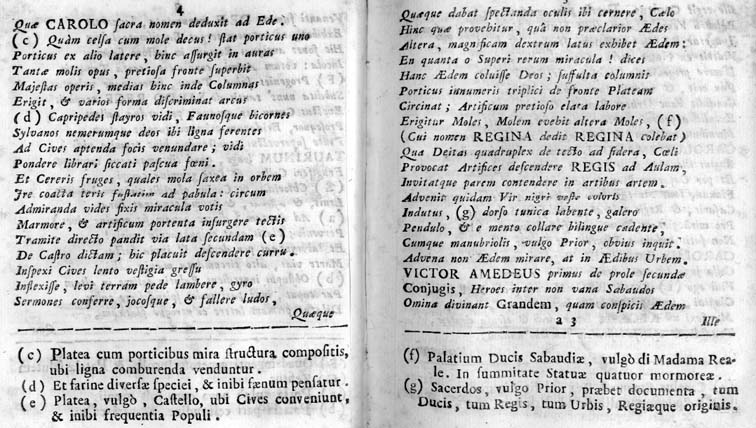 4
Quæ CAROLO ſacra nomen deduxit ad Ede.
(c) Quàm celſa cum mole decus! ſtat porticus uno
Porticus ex alio latere, hinc aſſurgit in auras
Tantæ molis opus, pretioſa fronte ſuperbit
Majeſtas operis, medias hinc inde Columnas
Erigit, & varios forma diſcriminat arcus
(d) Capripedes ſtayros vidi, Faunoſque bicornes
Sylvanos nemerumque deos ibi ligna ferentes
Ad Cives aptenda focis venundare; vidi
Pondere librari ſiccati paſcua fœni.
Et Cereris fruges, quales mola ſaxea in orbem
Ire coacta teris ad pabula: circum
Admiranda vides fixis miracula votis
Marmore, & artificum portenta inſurgere tectis
Tramite directo pandit via lata ſecundam (e)
De Caſtro dictam; hic placuit deſcendere curru.
Inſpexi Cives lento veſtigia greſſu
Inflexiſſe, levi terram pede lambere, gyro
Sermones conferre, jocoſque, & fallere ludos,
Quæque
(c) Platea cum porticibus mira ſtructura compoſitis,
ubi ligna comburenda venduntur.
(d) Et farine diverſæ ſpeciei, & inibi fænum penſatur.
(e) Platea, vulgò, Caſtello, ubi Cives conveniunt,
& inibi frequentia Populi.
Quæque dabat ſpectanda oculis ibi cernere, Cælo
Hinc quæ provehitur, quâ non præclarior Ædes
Altera, magnificam dextrum latus exhibet Ædem:
En quanta o Superi rerum miracula! dices
Hanc Ædem coluiſſe Deos; ſuffulta columnis
Porticus innumeris triplici de fronte Plateam
Circinat; Artificum pretioſo elata labore
Erigitur Moles, Molem evehit altera Moles, (f)
(Cui nomen REGINA dedit REGINA colebat)
Qua Deitas quadruplex de tecto ad ſidera, Cœli
Provocat Artifices deſcendere REGIS ad Aulam,
Invitatque parem contendere in artibus artem.
Advenit quidam Vir nigri veſte coloris
Indutus, (g) dorſo tunica labente, galero
Pendulo, & e mento collare bilingue cadente,
Cumque manubriolis, vulgo Prior, obvius inquit.
Advena non Ædem mirare, at in Ædibus Urbem.
VICTOR AMEDEUS primus de prole ſecundæ
Conjugis, Heroes inter non vana Sabaudos
Omina divinant Grandem, quam conſpicis Ædem
a 3 Ille
(f) Palatium Ducis Sabaudiæ, vulgò di Madama Rea-
le. In ſummitate Statuæ quatuor mormoreæ.
(g) Sacerdos, vulgo Prior, præbet documenta, tum
Ducis, tum Regis, tum Urbis, Regiæque originis.